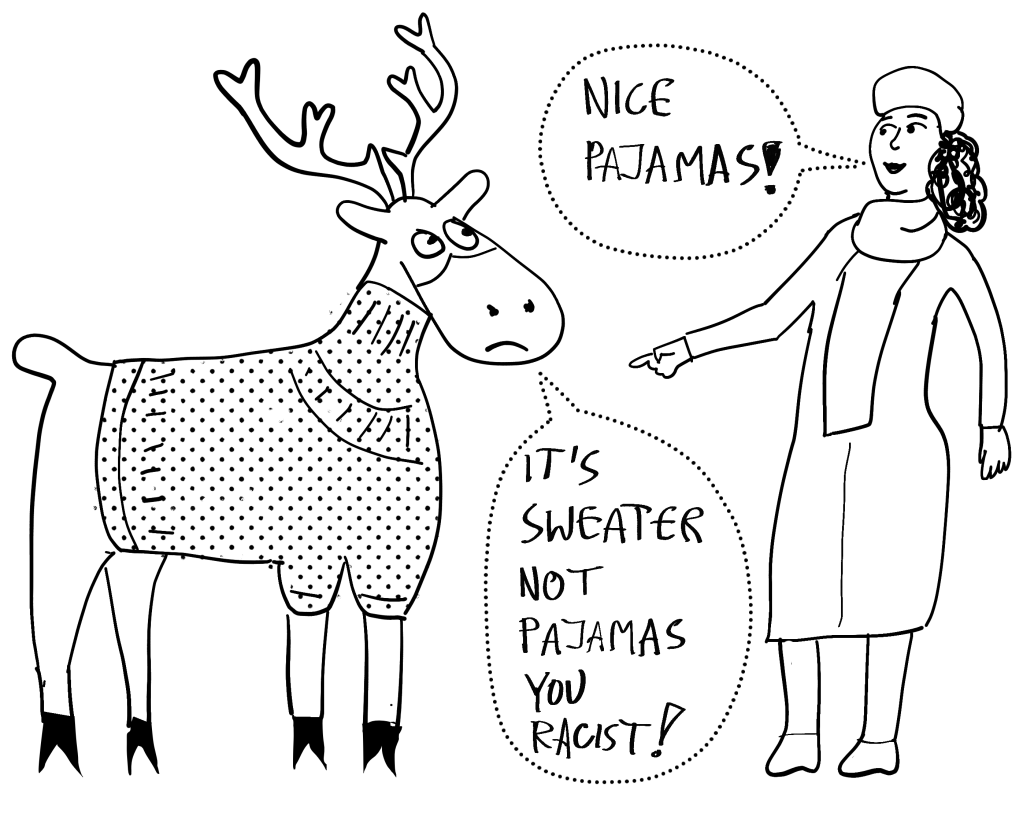 NICE
PAJAMAS!
IT'S
SWEATER
NOT
PAJAMAS
YOU
RACIST!